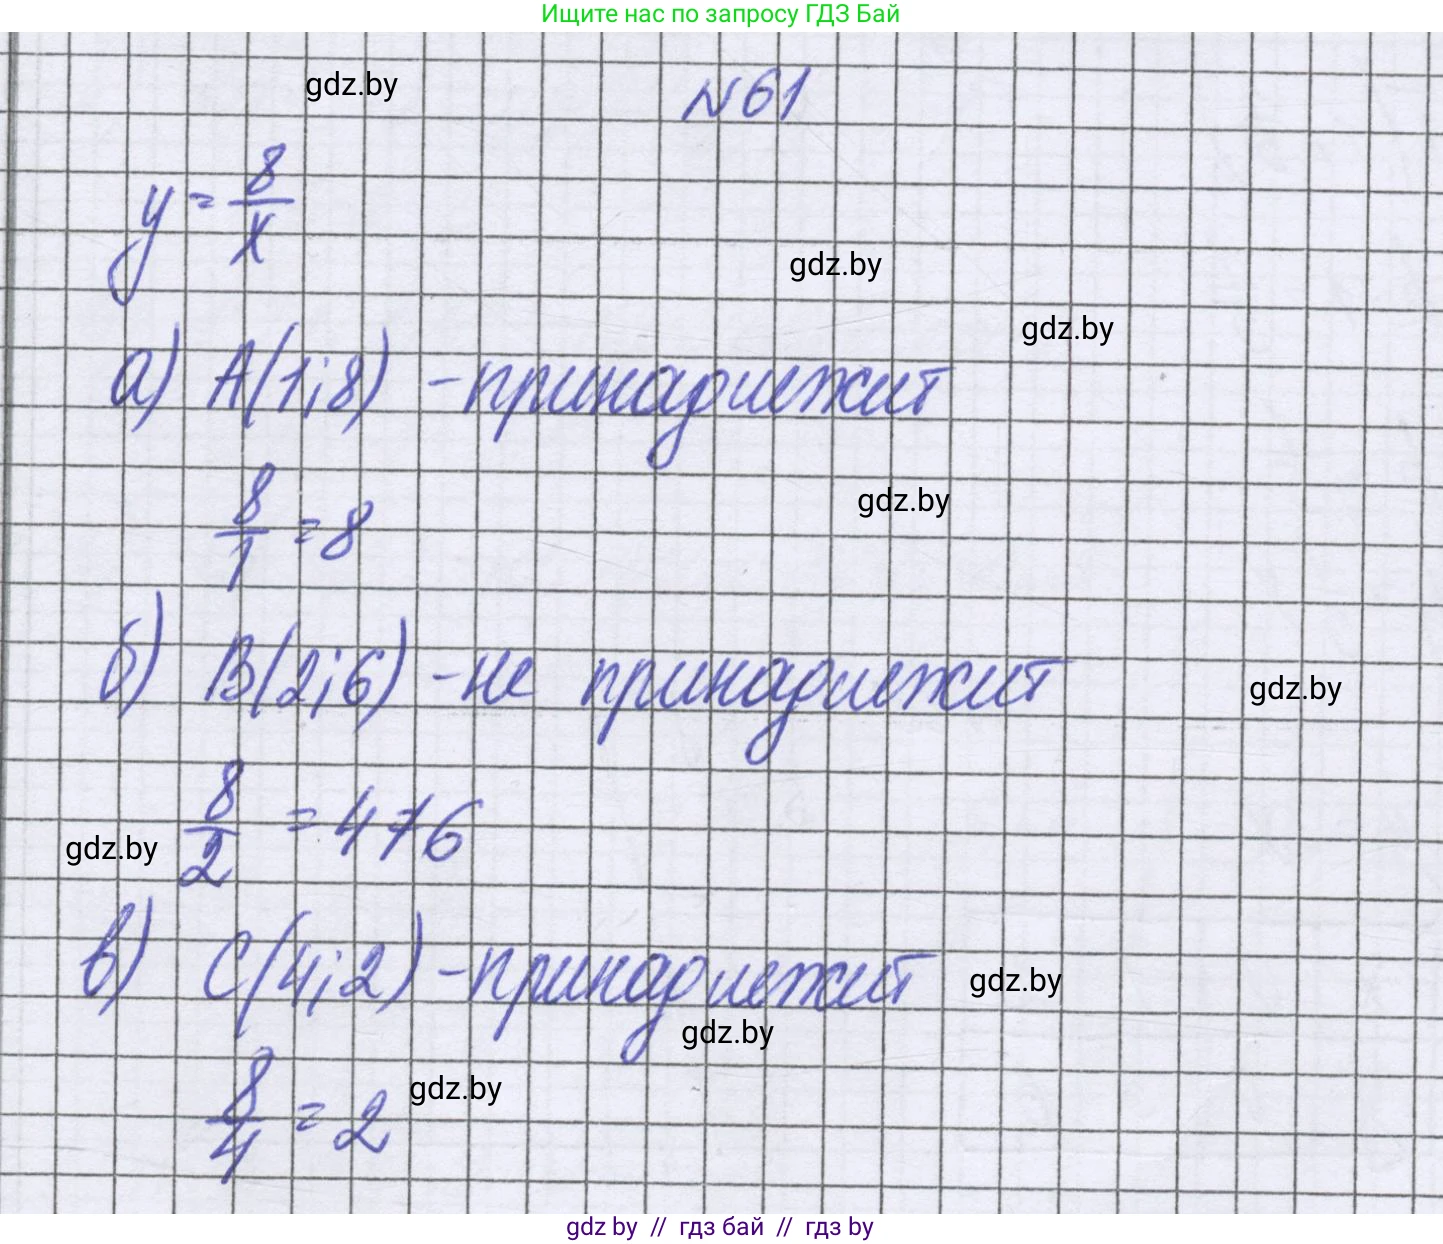 Ищите нас по запросу ГДЗ Бай
gdz.by
№61
y = 8/x
gdz.by
gdz.by
а) A(1;8) - принадлежит
8/1 = 8
gdz.by
б) B(2;6) - не принадлежит
gdz.by
8/2 = 4 ≠ 6
gdz.by
в) C(4;2) - принадлежит
gdz.by
gdz.by
8/4 = 2
gdz.by
gdz by // гдз бай // гдз by